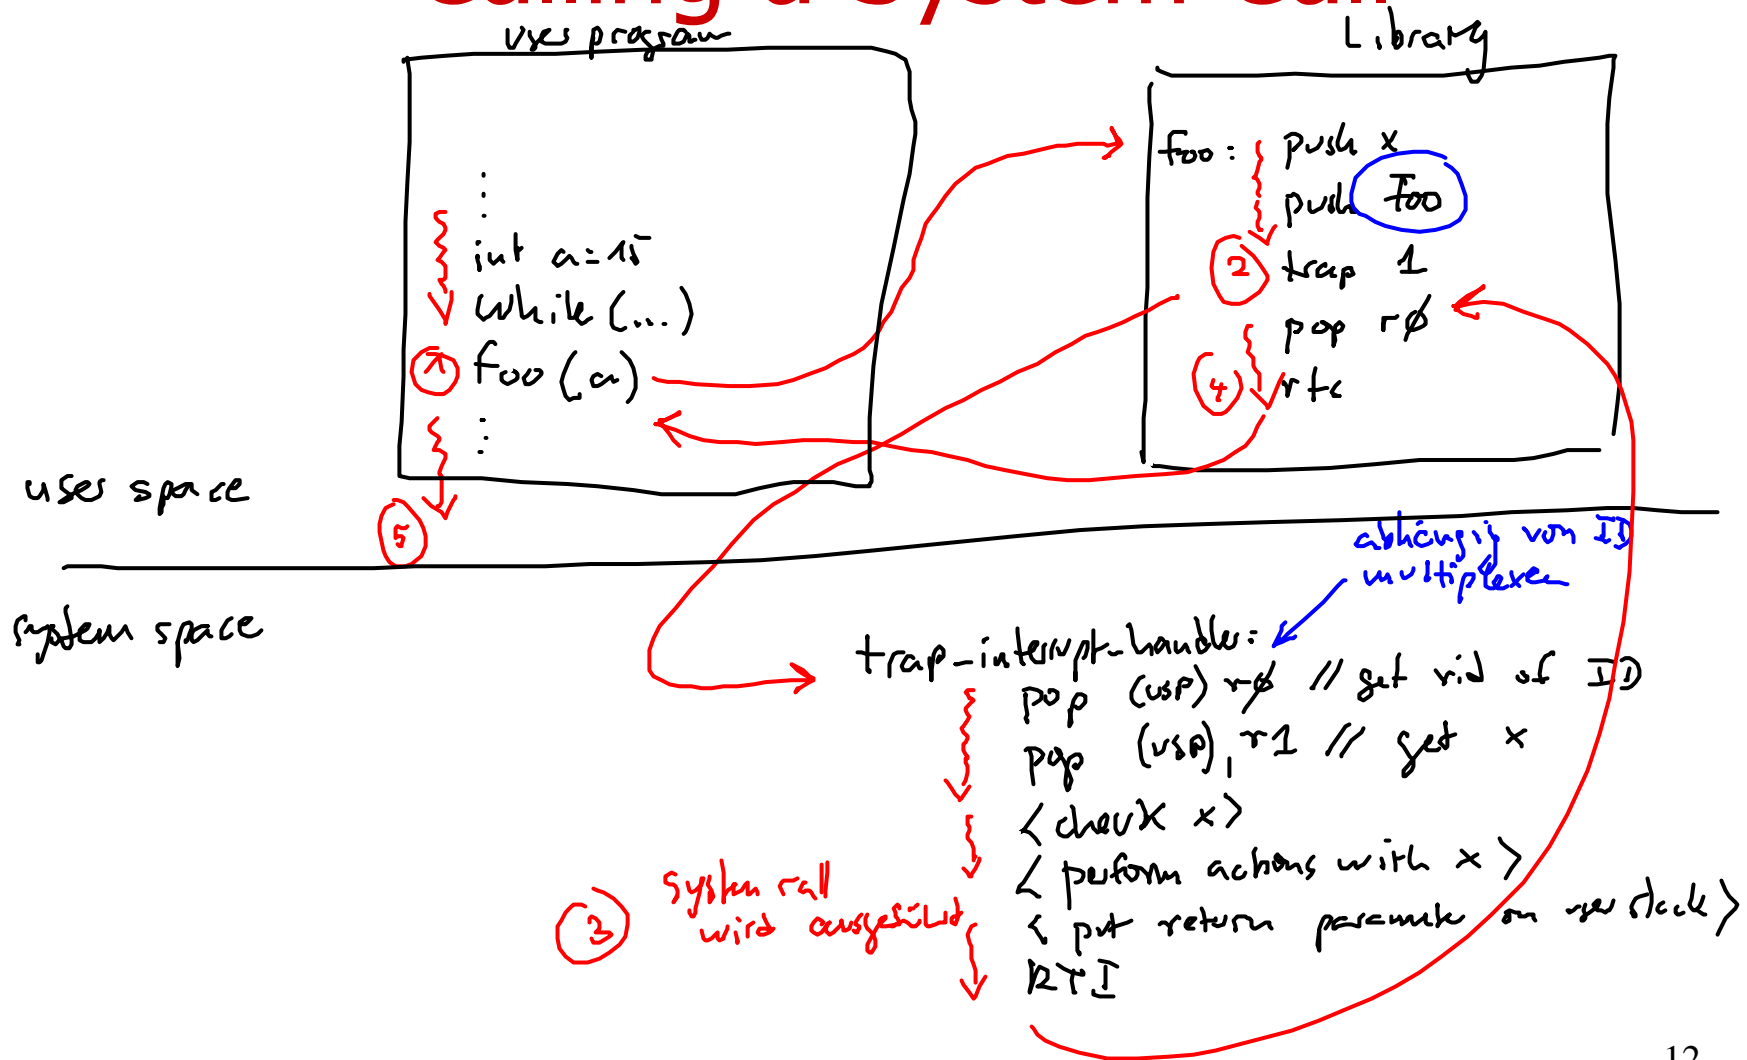 Calling a System Call
user program
Library
⋮
int a=15
while (...)
1 foo (a)
⋮
5
foo: push x
push Foo
2 trap 1
pop r0
4 rts
user space
system space
abhängig von ID
multiplexen
trap-interrupt-handler:
pop (usp) r0 // get rid of ID
pop (usp), r1 // get x
<check x>
<perform actions with x>
<put return parameter on user stack>
RTI
3 system call
wird ausgeführt
12